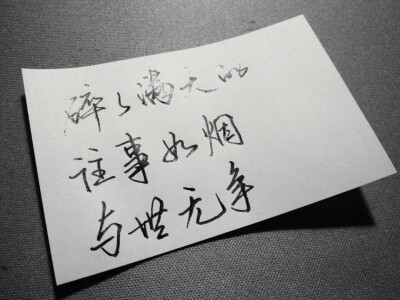 醉了满天的
往事如烟
与世无争